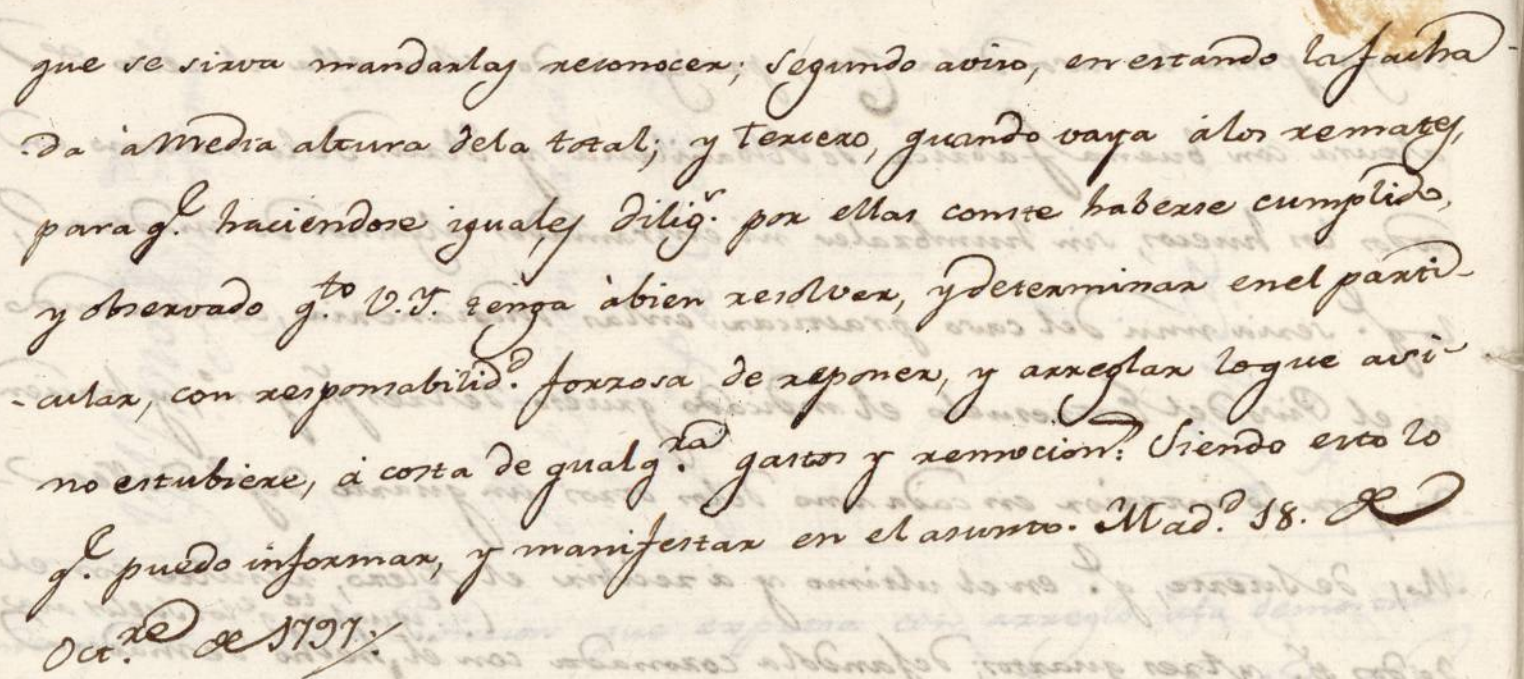 que se sirva mandarlas reconocer; Segundo aviso, en estando la facha-
-da à Media altura dela total; y Tercero, quando vaya álos remates,
para q.e haciendose iguales dilig.s por ellas conste haberse cumplido,
y observado q.to V.Y. tenga àbien resolver, y determinar enel parti-
-cular, con responsabilid.d forzosa de reponer, y arreglar loque asi
no estubiere, á costa de qualq.ra gastos y remocion: Siendo esto lo
q.e puedo informar, y manifestar en el asunto. Mad.d 18. de
Oct.re de 1797./